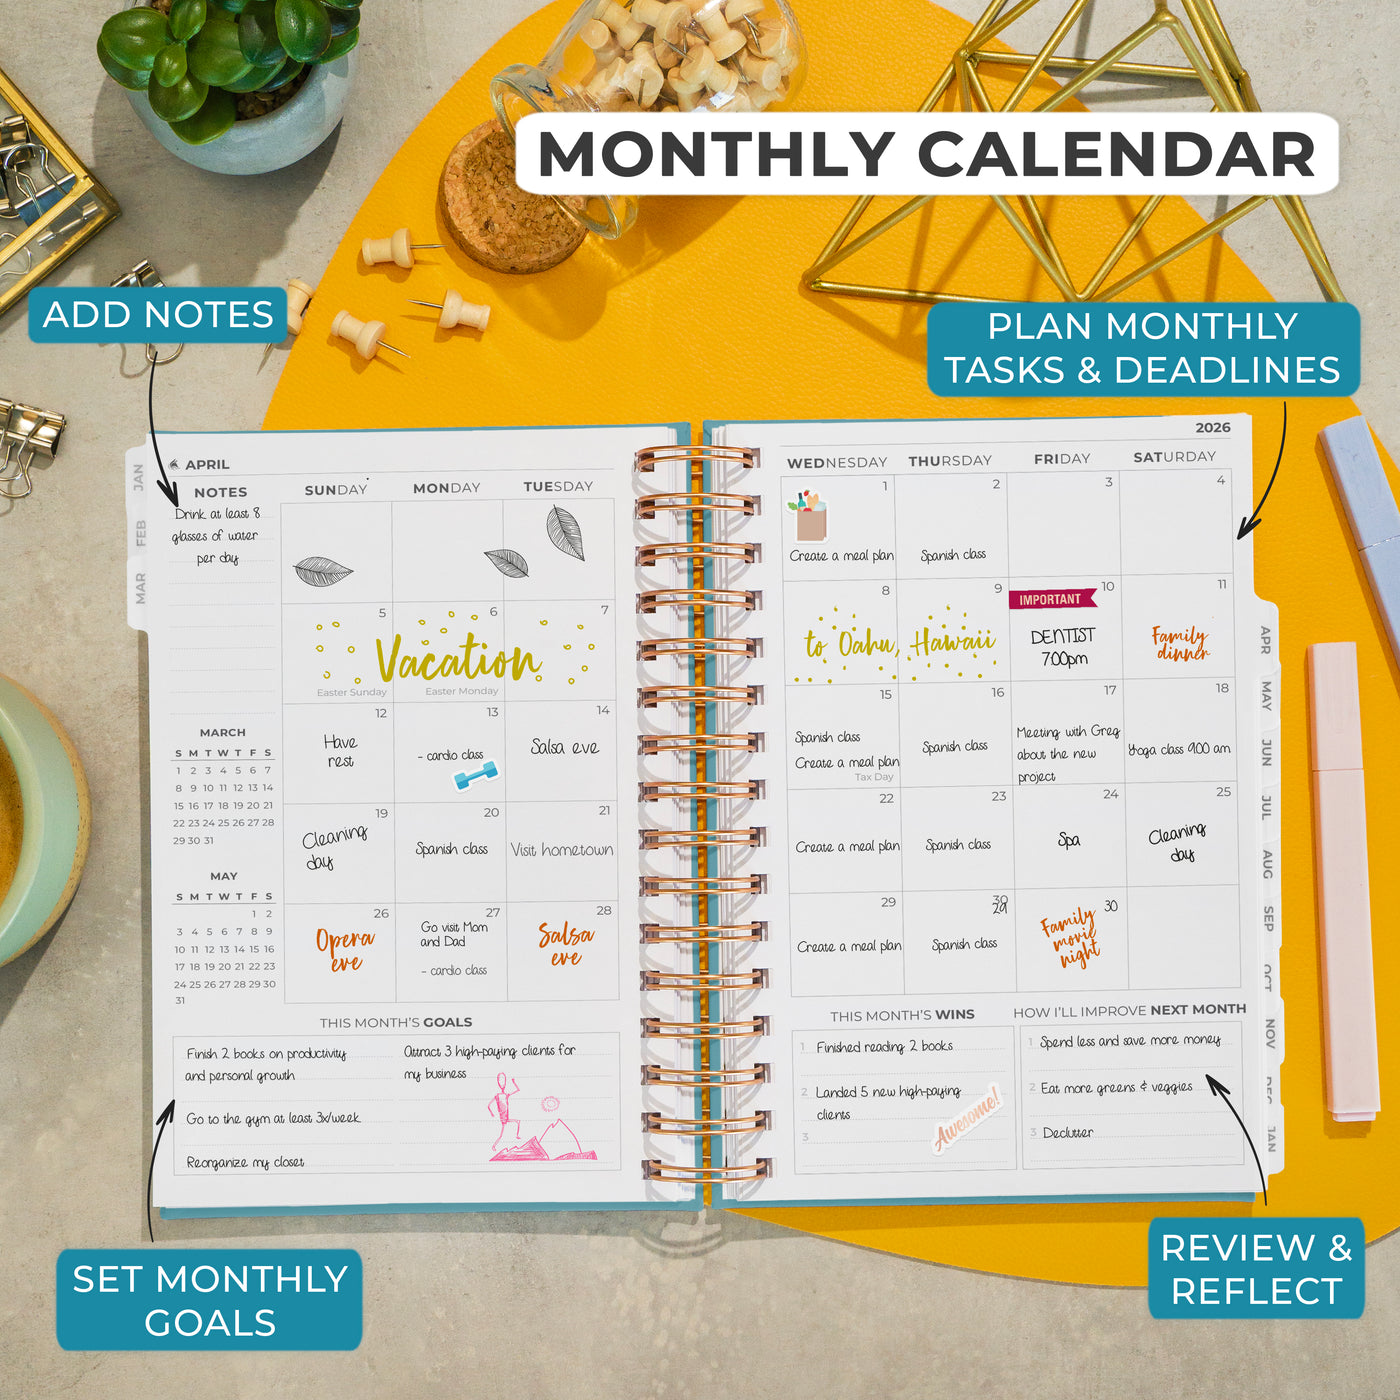 MONTHLY CALENDAR
ADD NOTES
PLAN MONTHLY
TASKS & DEADLINES
APRIL
2026
JAN
FEB
MAR
NOTES
Drink at least 8
glasses of water
per day
SUNDAY MONDAY TUESDAY WEDNESDAY THURSDAY FRIDAY SATURDAY
1 2 3 4
Create a meal plan
Spanish class
5 6 7 8 9 10 11
Vacation to Oahu, Hawaii
Easter Sunday
Easter Monday
IMPORTANT
DENTIST
7:00pm
Family
dinner
12 13 14 15 16 17 18
Have
rest
- cardio class
Salsa eve
Spanish class
Create a meal plan
Tax Day
Spanish class
Meeting with Greg
about the new
project
Yoga class 9:00 am
19 20 21 22 23 24 25
Cleaning
day
Spanish class
Visit hometown
Create a meal plan
Spanish class
Spa
Cleaning
day
26 27 28 29 30
29
30
Opera
eve
Go visit Mom
and Dad
- cardio class
Salsa
eve
Create a meal plan
Spanish class
Family
movie
night
MARCH
S M T W T F S
1 2 3 4 5 6 7
8 9 10 11 12 13 14
15 16 17 18 19 20 21
22 23 24 25 26 27 28
29 30 31
MAY
S M T W T F S
1 2
3 4 5 6 7 8 9
10 11 12 13 14 15 16
17 18 19 20 21 22 23
24 25 26 27 28 29 30
31
APR
MAY
JUN
JUL
AUG
SEP
OCT
NOV
DEC
JAN
THIS MONTH'S GOALS
Finish 2 books on productivity
and personal growth
Go to the gym at least 3x/week
Reorganize my closet
Attract 3 high-paying clients for
my business
THIS MONTH'S WINS
1 Finished reading 2 books
2 Landed 5 new high-paying
clients
3
Awesome!
HOW I'LL IMPROVE NEXT MONTH
1 Spend less and save more money
2 Eat more greens & veggies
3 Declutter
SET MONTHLY
GOALS
REVIEW &
REFLECT